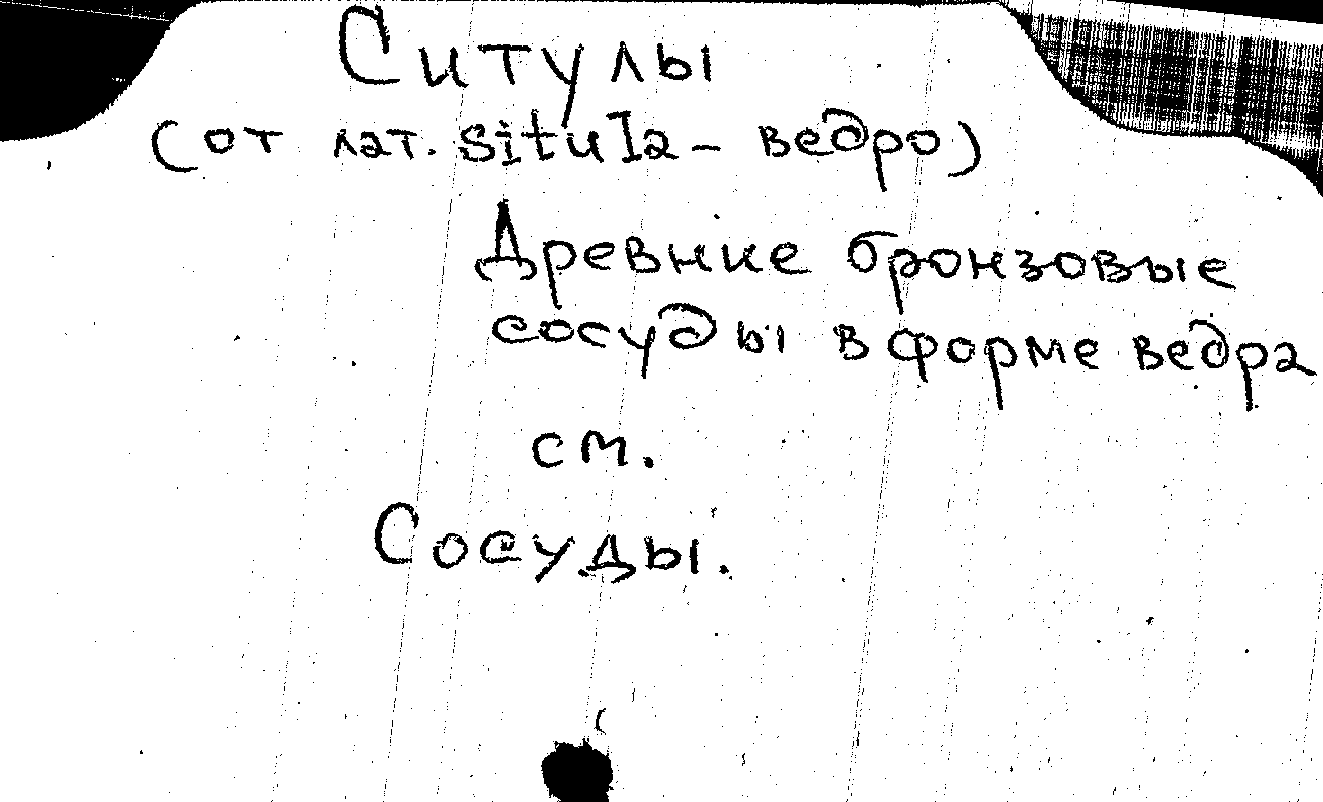 Ситулы
(от лат. situla - ведро)
Древние бронзовые
сосуды в форме ведра
см.
Сосуды.